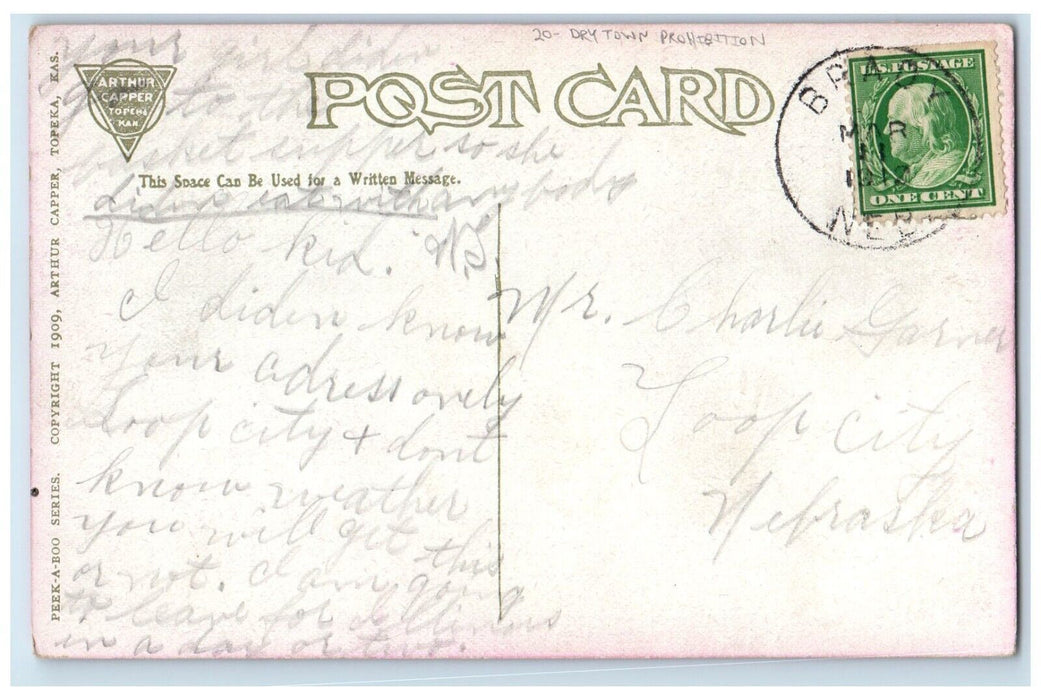 20- DRY TOWN PROHIBITION
your girl diden
basket supper so she
diden eat with anybody
ARTHUR
CAPPER
TOPEKA
KAN.
POST CARD
This Space Can Be Used for a Written Message.
BRADY
MAR
NEBR
U.S. POSTAGE
ONE CENT
Hello kid.
I diden know
your adress ovely
Loop city + dont
know weather
you will get this
or not. I am going
to leave for Illinois
in a day or two.
Mr. Charlie Garner
Loop City
Nebraska
PEEK-A-BOO SERIES. COPYRIGHT 1909, ARTHUR CAPPER, TOPEKA, KAS.